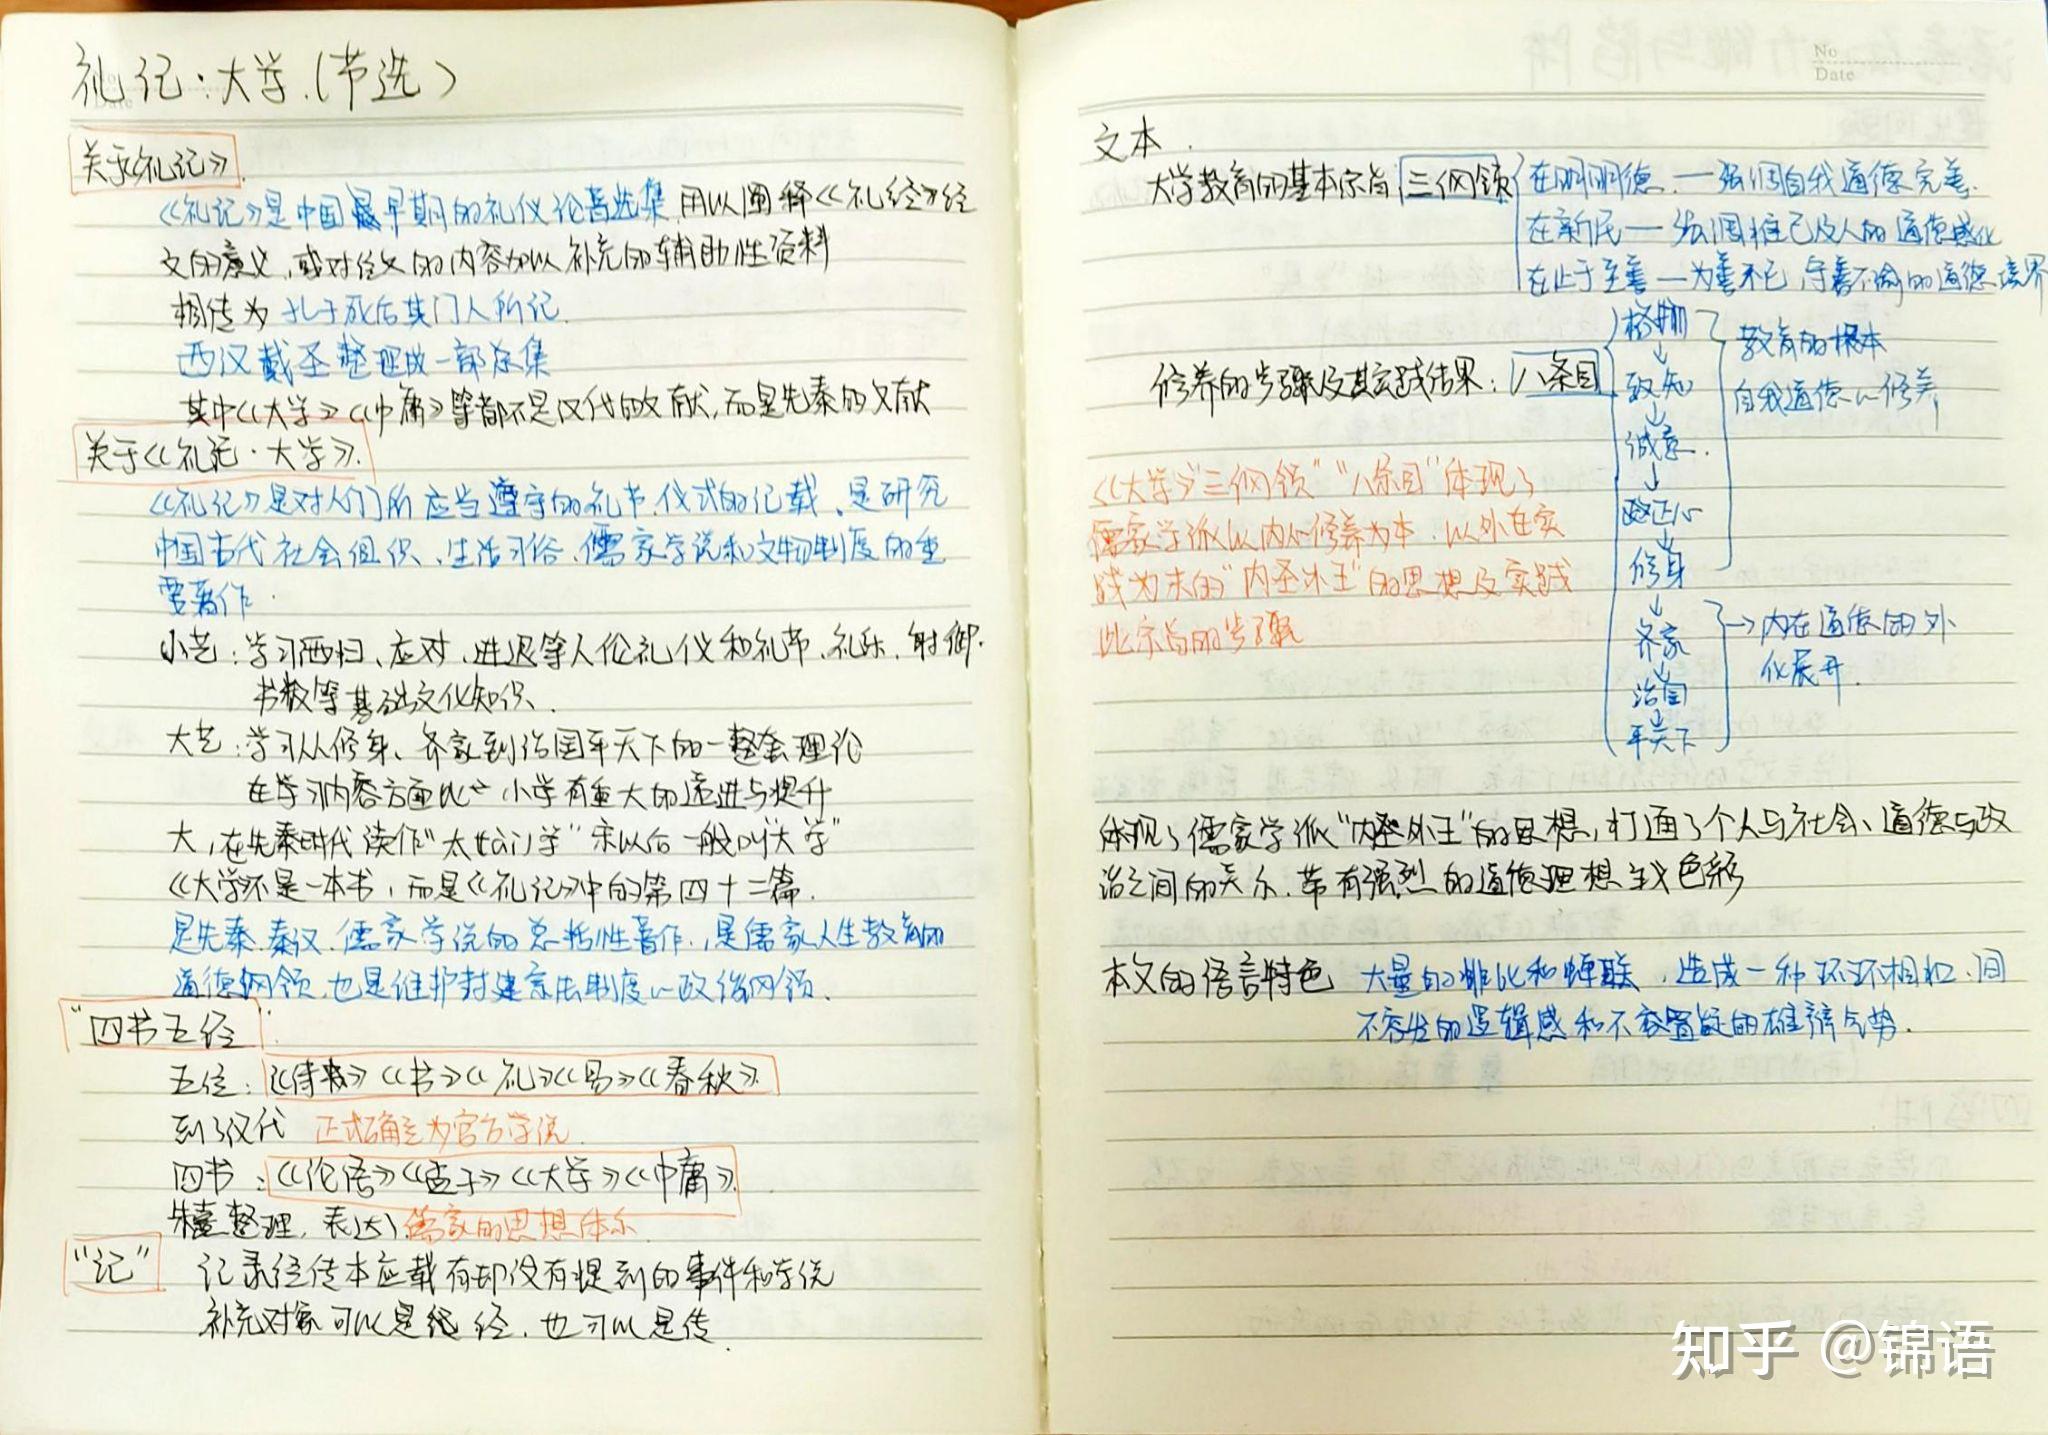 礼记:大学.(节选)
关于《礼记》
《礼记》是中国最早期的礼仪论著选集,用以阐释《礼经》经
文的意义,或对经文的内容加以补充的辅助性资料
相传为孔子死后其门人所记
西汉戴圣整理成一部总集
其中《大学》《中庸》等都不是汉代的文献,而是先秦的文献
关于《礼记·大学》.
《礼记》是对人们所应当遵守的礼节、仪式的记载、是研究
中国古代社会组织、生活习俗、儒家学说和文物制度的重
要著作.
小艺:学习洒扫、应对、进退等人伦礼仪和礼节、礼乐、射御.
书数等基础文化知识.
大艺:学习从修身、齐家到治国平天下的一整套理论
在学习内容方面比 小学有重大的递进与提升
大,在先秦时代读作“太(tài)学”宋以后一般叫“大学”
《大学》不是一本书,而是《礼记》中的第四十二篇.
是先秦.秦汉.儒家学说的总括性著作,是儒家人生教育的
道德纲领,也是维护封建宗法制度的政治纲领.
“四书五经”
五经:《诗》《书》《礼》《易》《春秋》.
到了汉代 正式确立为官方学说
四书:《论语》《孟子》《大学》《中庸》.
朱熹整理,表达儒家的思想体系
“记” 记录经传本应载有却没有提到的事件和学说
补充对象可以是经,也可以是传.
No
Date
文本.
大学教育的基本宗旨 三纲领 在明明德.—强调自我道德完善.
在新民—强调推己及人的道德感化
在止于至善—为善不已,守善不渝的道德境界
修养的步骤及其实践结果:八条目
格物
↓
致知
↓
诚意.
↓
正心
↓
修身
↓
齐家
↓
治国
↓
平天下
教育的根本
自我道德的修养
→内在道德的外
化展开.
《大学》“三纲领”“八条目”体现了
儒家学派以内心修养为本.以外在实
践为末的“内圣外王”的思想及实践
此宗旨的步骤
体现了儒家学派“内圣外王”的思想,打通了个人与社会、道德与政
治之间的关系.带有强烈的道德理想主义色彩
本文的语言特色 大量的排比和蝉联,造成一种环环相扣.间
不容发的逻辑感和不容置疑的雄辩气势.
知乎 @锦语